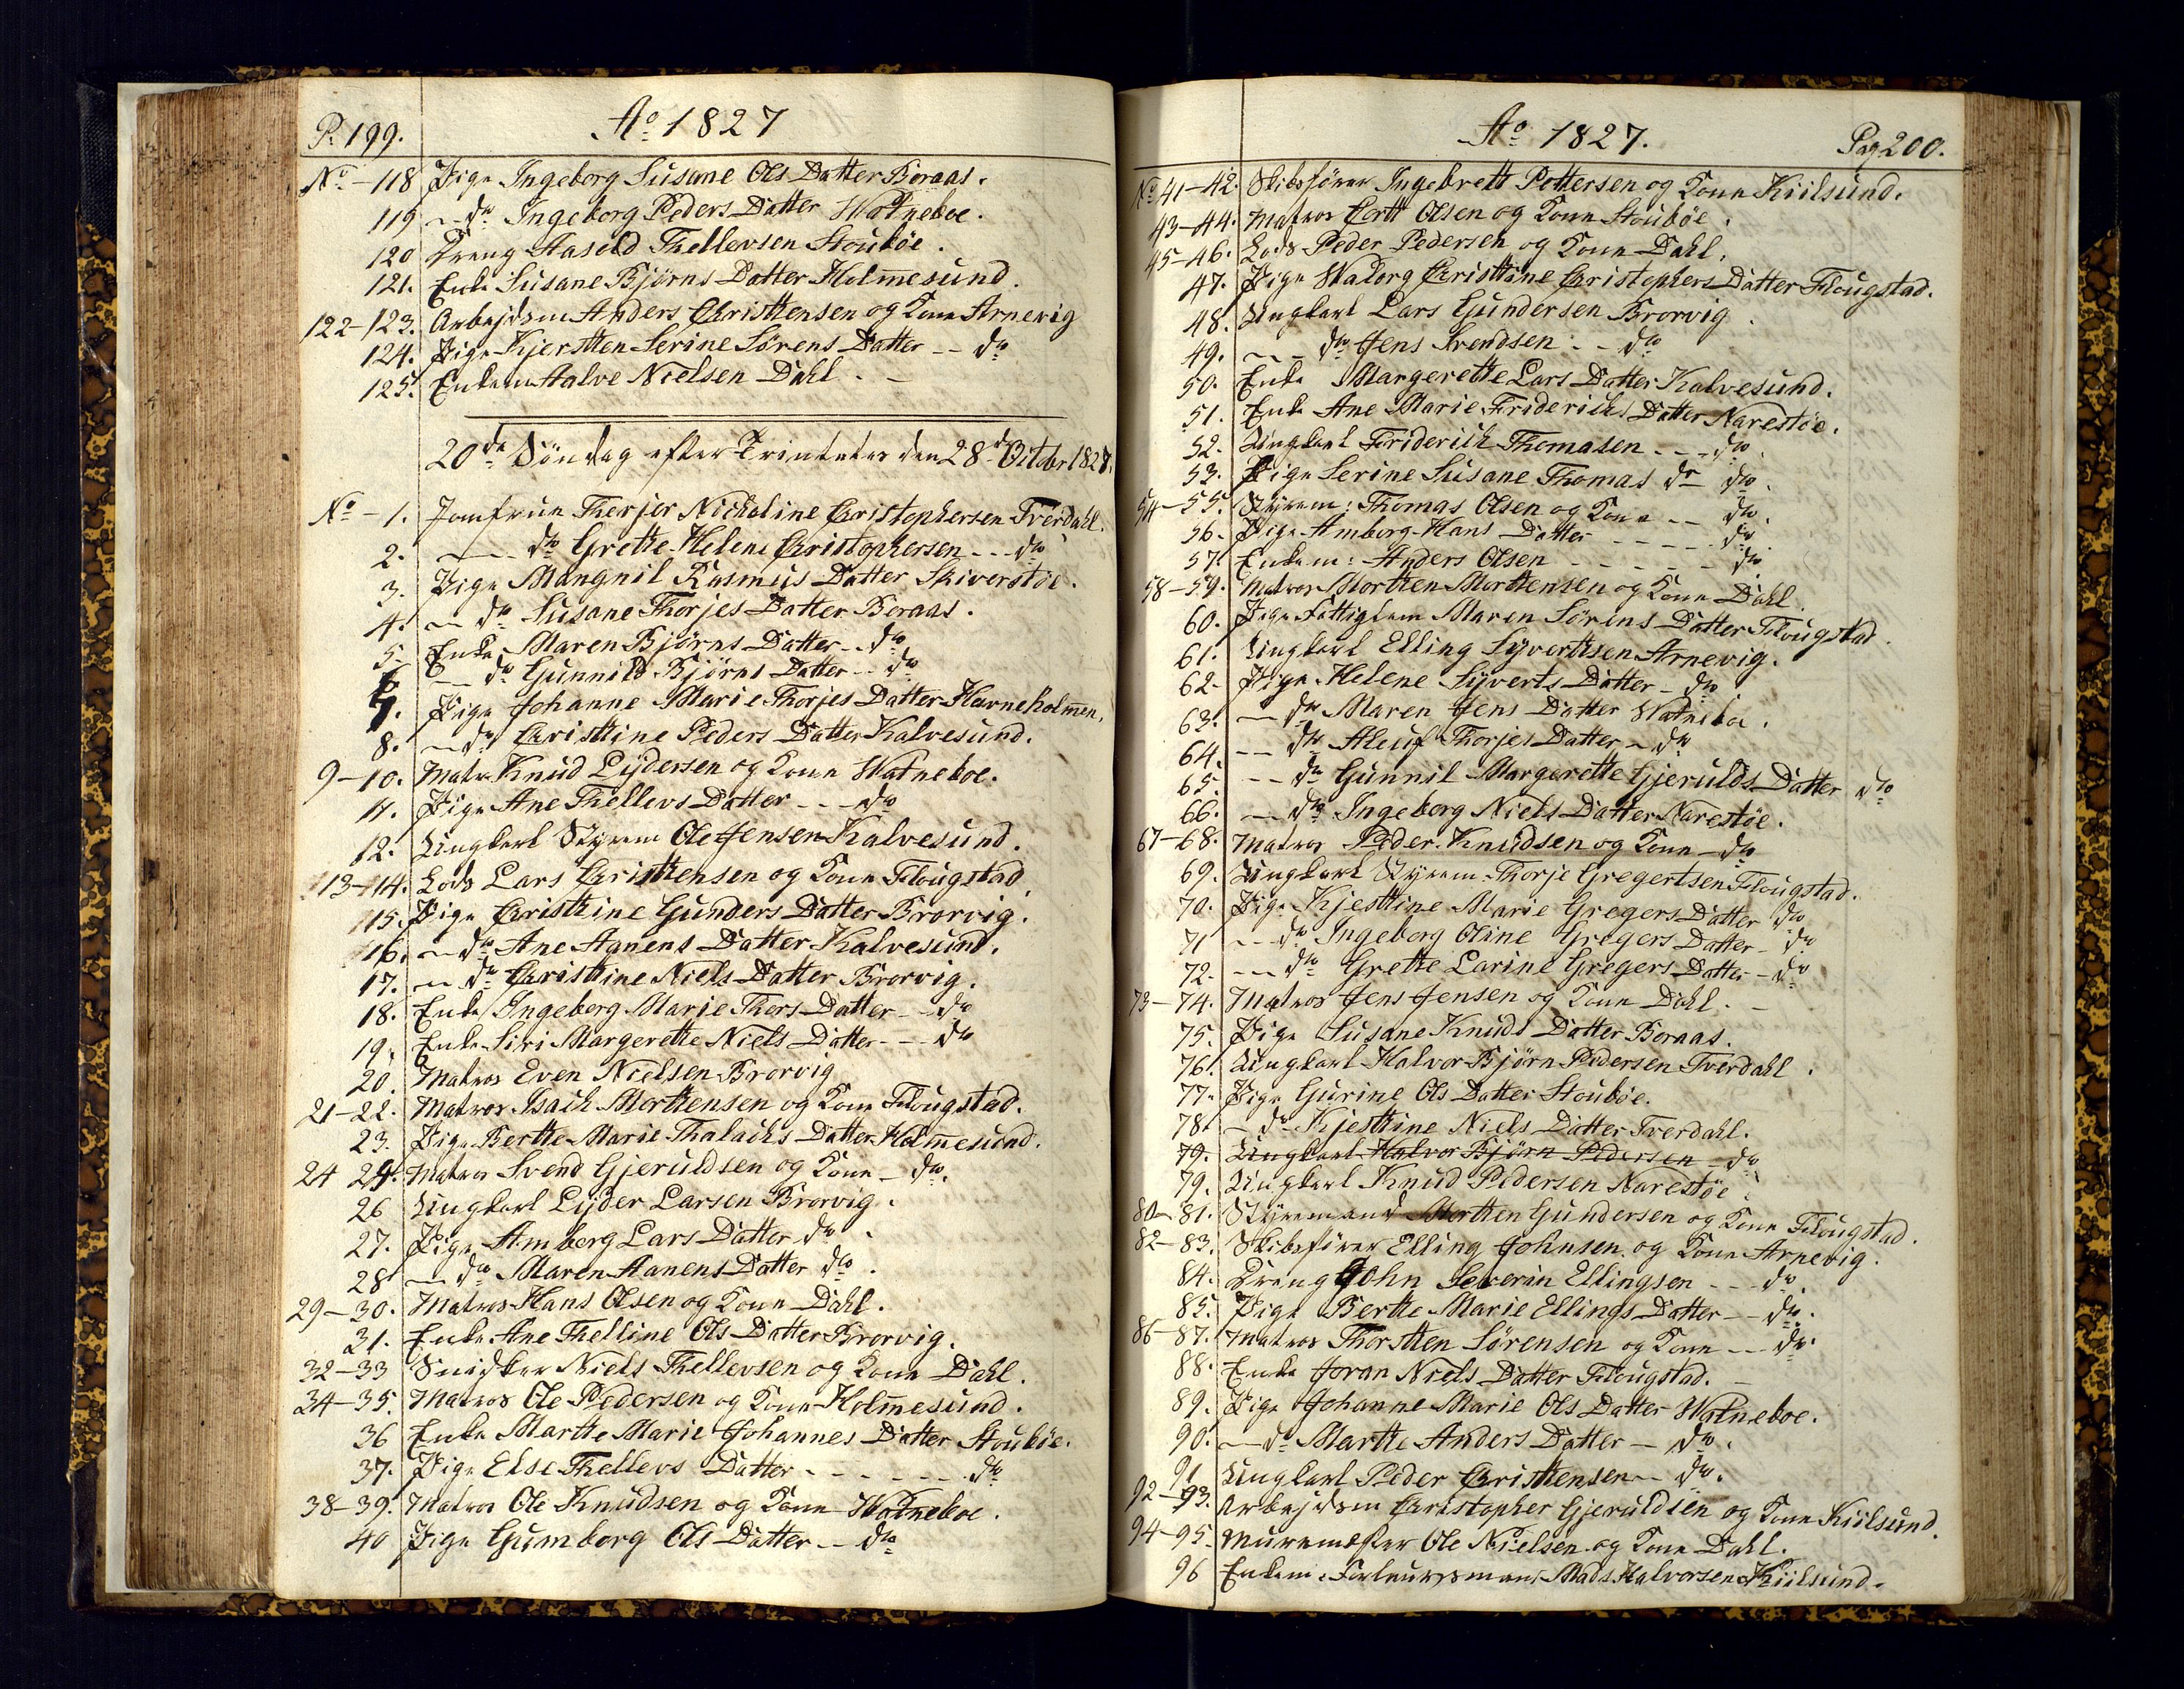 P. 199.
Ao 1827
No - 118 Pige Ingeborg Susane Ols Datter Boraas.
119 — do Ingeborg Peders Datter Watneboe.
120 Dreng Aasold Thellevsen Stouböe.
121. Enke Susane Bjørns Datter Holmesund.
122-123. Arbejdsm Anders Christtensen og Kone Arnevig
124. Pige Kjerstten Serine Sørens Datter -- do
125. Enkem Halve Nielsen Dahl. -
20de Søndag efter Trinitatis den 28d October 1827.
No - 1. Jomfrue Therjer Nicholine Christophersen Tverdahl.
2. --- do Grette Helene Christophersen --- do
3. Pige Mangnil Rasmus Datter Skiverstöe.
4. — do Susane Thorjes Datter Boraas.
5 Enke Maren Bjørns Datter -- do
6 — do Gunnild Bjørns Datter -- do
7. Pige Johanne Marie Thorjes Datter Havneholmen.
8. — do Christtine Peders Datter Kalvesund.
9-10. Matr. Knud Lydersen og Kone Watneboe.
11. Pige Ane Thellevs Datter --- do
12. Ungkarl Styrm Ole Jensen Kalvesund.
13-14. Lods Lars Christtensen og Kone Flougstad
15. Pige Christtine Gunders Datter Brorvig.
16. — do Ane Aanens Datter Kalvesund.
17. — do Christtine Niels Datter Brorvig.
18. Enke Ingeborg Marie Thers Datter -- do
19. Enke Siri Margerette Niels Datter --- do
20. Matros Even Nielsen Brorvig
21-22. Matros Isach Morttensen og Kone Flougstad.
23. Pige Bertte Marie Thalachs Datter Holmesund.
24 25. Matros Svend Gjeruldsen og Kone - do.
26 Ungkarl Lyder Larsen Brorvig.
27. Pige Amborg Lars Datter do.
28 — do Maren Aanens Datter do.
29-30. Matros Hans Olsen og Kone Dahl.
31. Enke Ane Thelline Ols Datter Brorvig.
32-33 Snidker Niels Thellevsen og Kone Dahl.
34-35. Matros Ole Pedersen og Kone Holmesund.
36 Enke Martte Marie Johannes Datter Stouböe.
37. Pige Else Thellevs Datter ------ do
38-39. Matros Ole Knudsen og Kone Watneboe.
40 Pige Gumborg Ols Datter -- do
Ao 1827.
Pag 200.
No 41-42. Skibsfører Ingebrett Pettersen og Kone Kiilsund.
43-44. Matros Cortt Olsen og Kone Stouböe.
45-46. Lods Peder Pedersen og Kone Dahl.
47. Pige Walorg Christtine Christophers Datter Flougstad.
48. Ungkarl Lars Gundersen Brorvig.
49. -- do Jens Svendsen -- do
50. Enke Margerette Lars Datter Kalvesund.
51. Enke Ane Marie Friderichs Datter Narestöe.
52. Ungkarl Friderich Thomasen --- do.
53. Pige Serine Susane Thomas dr do.
54-55. Styrem: Thomas Olsen og Kone -- do.
56. Pige Amborg Hans Datter ---- do.
57. Enkem: Anders Olsen ----- do
58-59. Matros Mortten Morttensen og Kone Dahl.
60. Pige Fattiglem Maren Sörens Datter Flougstad.
61. Ungkarl Elling Syverttsen Arnevig.
62- Pige Helene Syverts Datter - do
63. — do Maren Jens Datter Watneboe.
64. -- do Aleuf Thorjes Datter - do
65. -- do Gunnil Margerette Gjerulds Datter do
66. — do Ingeborg Niels Datter Narestöe.
67-68. Matros Peder Knudsen og Kone - do
69. Ungkarl Styrem Thorje Gregertsen Flougstad.
70. Pige Kjesttine Marie Gregers Datter do
71 -- do Ingeborg Oline Gregers Datter - do
72. --- do Grette Larine Gregers Datter - do
73-74. Matros Jens Jensen og Kone Dahl. -
75. Pige Susane Knuds Datter Boraas.
76. Ungkarl Halvor Bjørn Pedersen Tverdahl.
77. Pige Gurine Ols Datter Stouböe.
78. — do Kjesttine Niels Datter Tverdahl.
79. Ungkarl Halvor Bjørn Pedersen - do
79. Ungkarl Knud Pedersen Narestöe
80-81. Styremand Mortten Gundersen og Kone Flougstad.
82-83. Skibsfører Elling Johnsen og Kone Arnevig.
84. Dreng John Severin Ellingsen --- do.
85. Pige Bertte Marie Ellings Datter -- do.
86-87. Matros Thorstten Sørensen og Kone --- do.
88. Enke Joran Niels Datter Flougstad. -
89. Pige Johanne Marie Ols Datter Watneboe.
90. — do Martte Anders Datter — do.
91 Ungkarl Peder Christtensen -- do.
92-93. Arbejdsm Christopher Gjeruldsen og Kone Kiilsund.
94-95. Muremester Ole Nielsen og Kone Dahl.
96 Enkem: Mads Halvorsen Kiilsund.